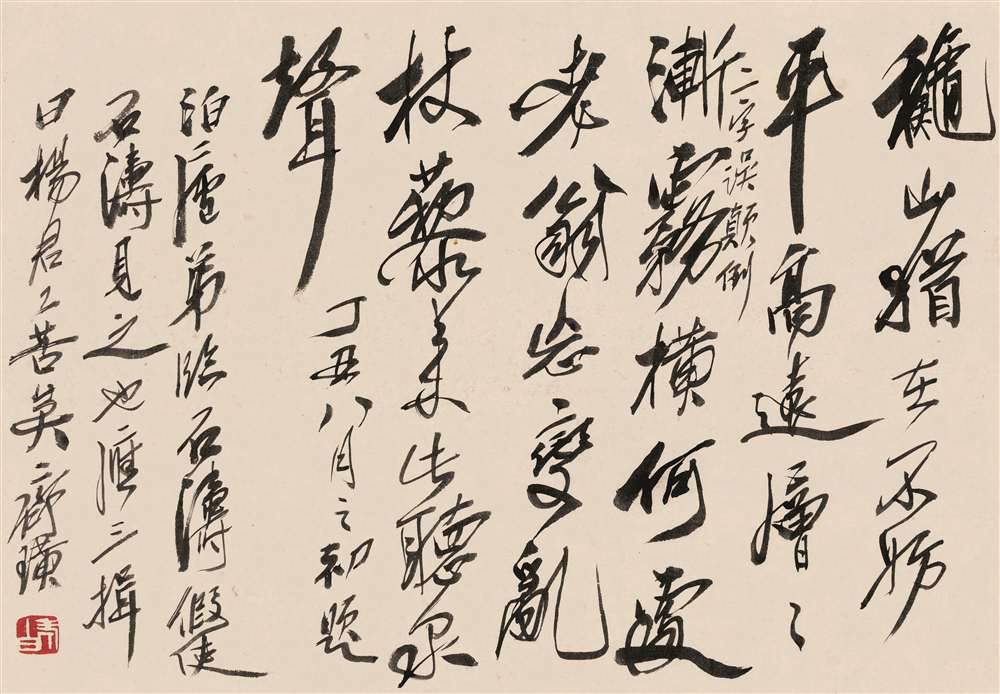 龝山猶在不妨
平高遠層〻
漸霧橫何處
二字誤顛倒
老翁忘變亂
杖藜來此聽泉
聲
丁丑八月之初題
泊廬弟臨石濤假使
石濤見之也應三揖
曰楊君工苦矣齊璜